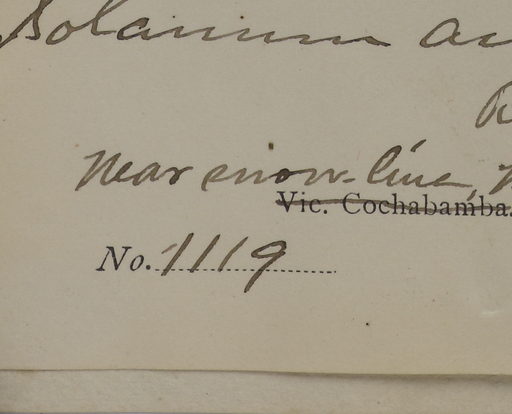 Solanum
Near snow-line,
Vic. Cochabamba.
No. 1119